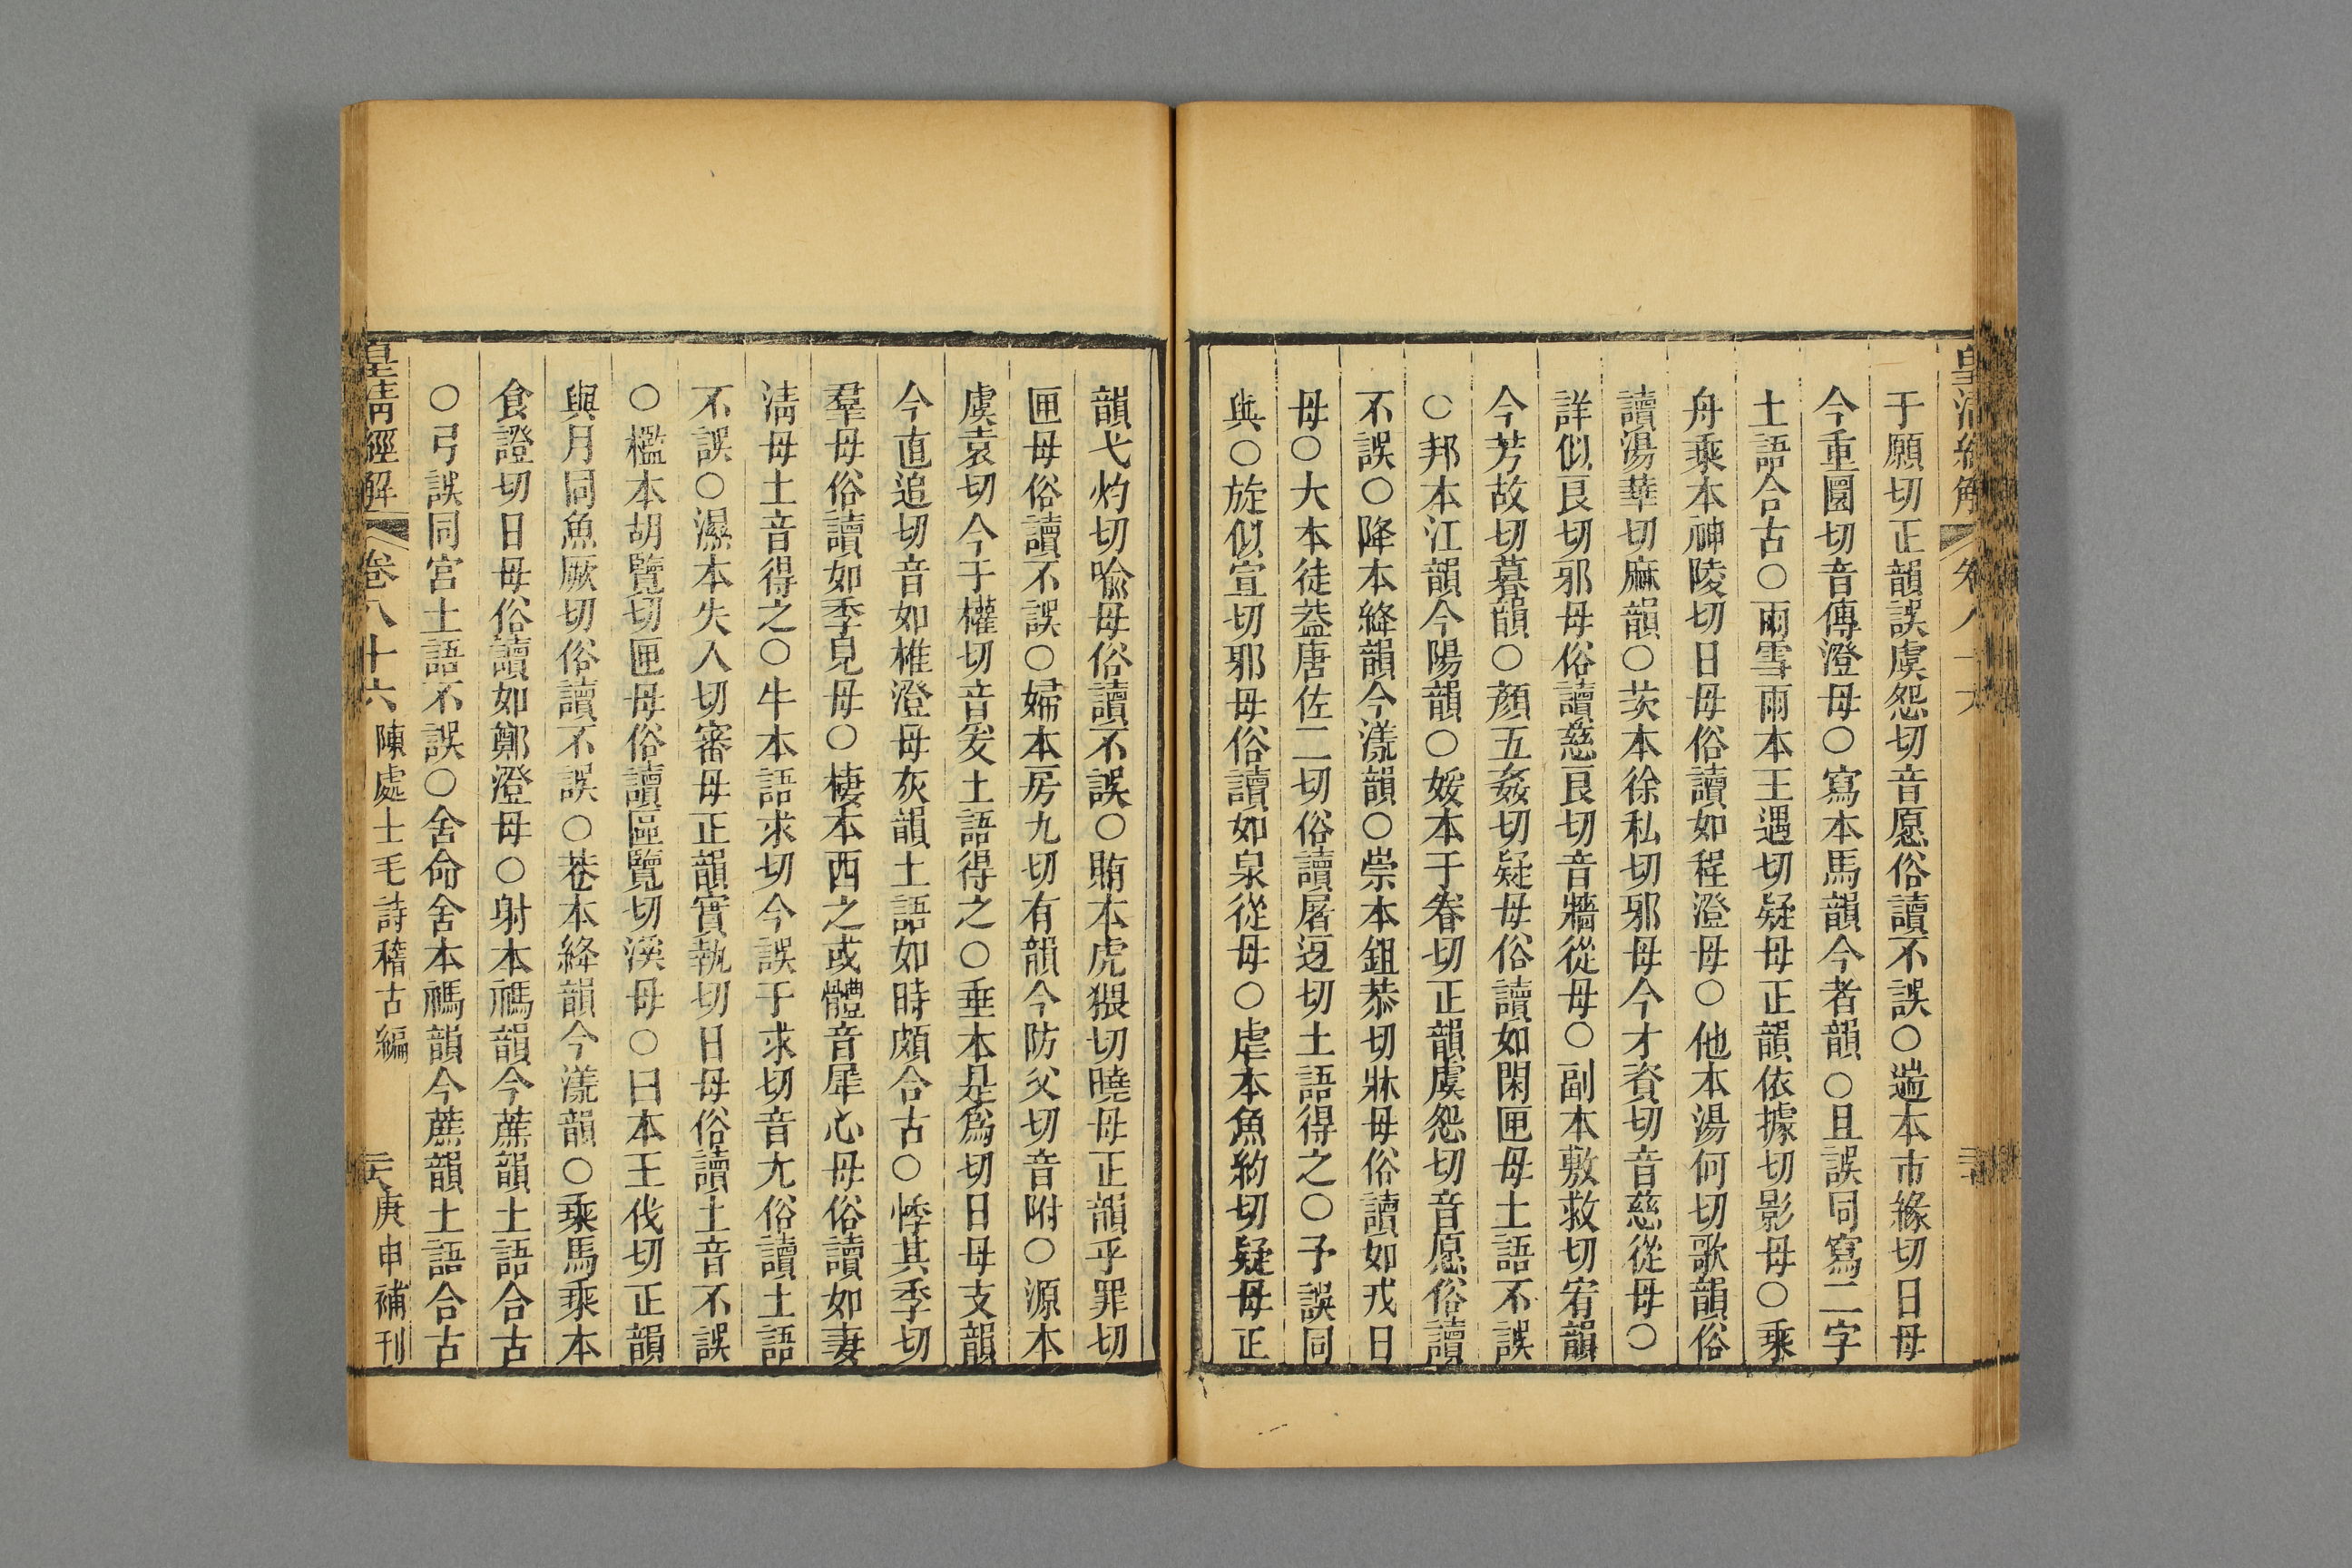 皇清經解 卷八十六
于願切正韻誤虞怨切音愿俗讀不誤○遄本市緣切日母
今重圜切音傳澄母○寫本馬韻今者韻○且誤同寫二字
土語合古○雨雪雨本王遇切疑母正韻依據切影母○乘
舟乘本神陵切日母俗讀如程澄母○他本湯何切歌韻俗
讀湯華切麻韻○茨本徐私切邪母今才資切音慈從母○
詳似良切邪母俗讀慈良切音牆從母○副本敷救切宥韻
今芳故切暮韻○顏五姦切疑母俗讀如閑匣母土語不誤
○邦本江韻今陽韻○媛本于眷切正韻虞怨切音愿俗讀
不誤○降本絳韻今漾韻○崇本鉏恭切牀母俗讀如戎日
母○大本徒葢唐佐二切俗讀屠迓切土語得之○予誤同
與○旋似宣切邪母俗讀如泉從母○虐本魚約切疑母正
韻弋灼切喻母俗讀不誤○賄本虎猥切曉母正韻乎罪切
匣母俗讀不誤○婦本房九切有韻今防父切音附○源本
虞袁切今于權切音爰土語得之○垂本是爲切日母支韻
今直追切音如椎澄母灰韻土語如時頗合古○悸其季切
羣母俗讀如季見母○棲本西之或體音犀心母俗讀如妻
淸母土音得之○牛本語求切今誤于求切音尤俗讀土語
不誤○濕本失入切審母正韻實執切日母俗讀土音不誤
○檻本胡覽切匣母俗讀區覽切溪母○曰本王伐切正韻
與月同魚厥切俗讀不誤○巷本絳韻今漾韻○乘馬乘本
食證切日母俗讀如鄭澄母○射本禡韻今蔗韻土語合古
○弓誤同宮土語不誤○舍命舍本禡韻今蔗韻土語合古
皇清經解 卷八十六 陳處士毛詩稽古編 庚申補刊